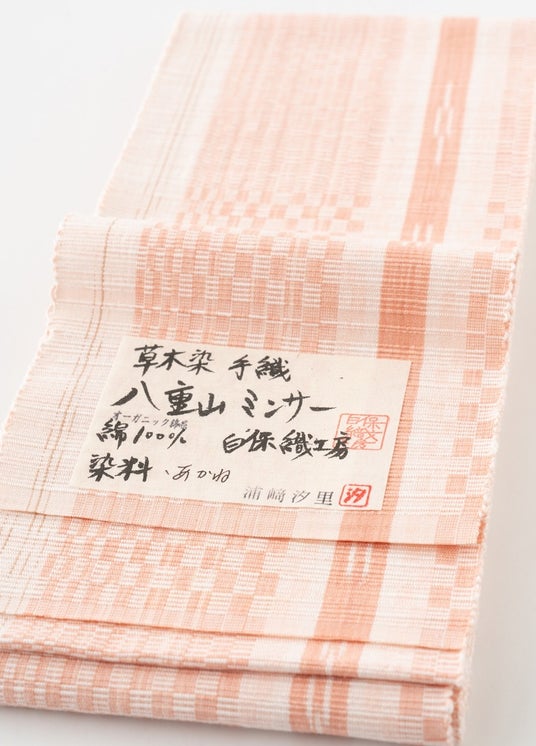 草木染 手織
八重山 ミンサー
オーガニック綿花
綿100%
白保織工房
染料、あかね
浦﨑汐里
汐